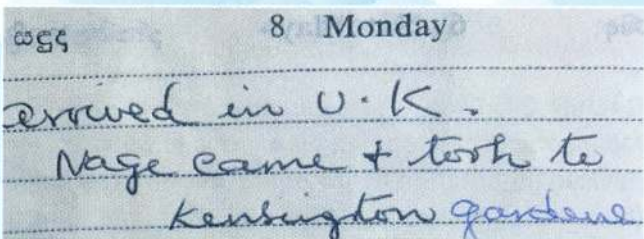 සඳුදා 8 Monday
arrived in U.K.
Nage came + took to
Kensington gardens